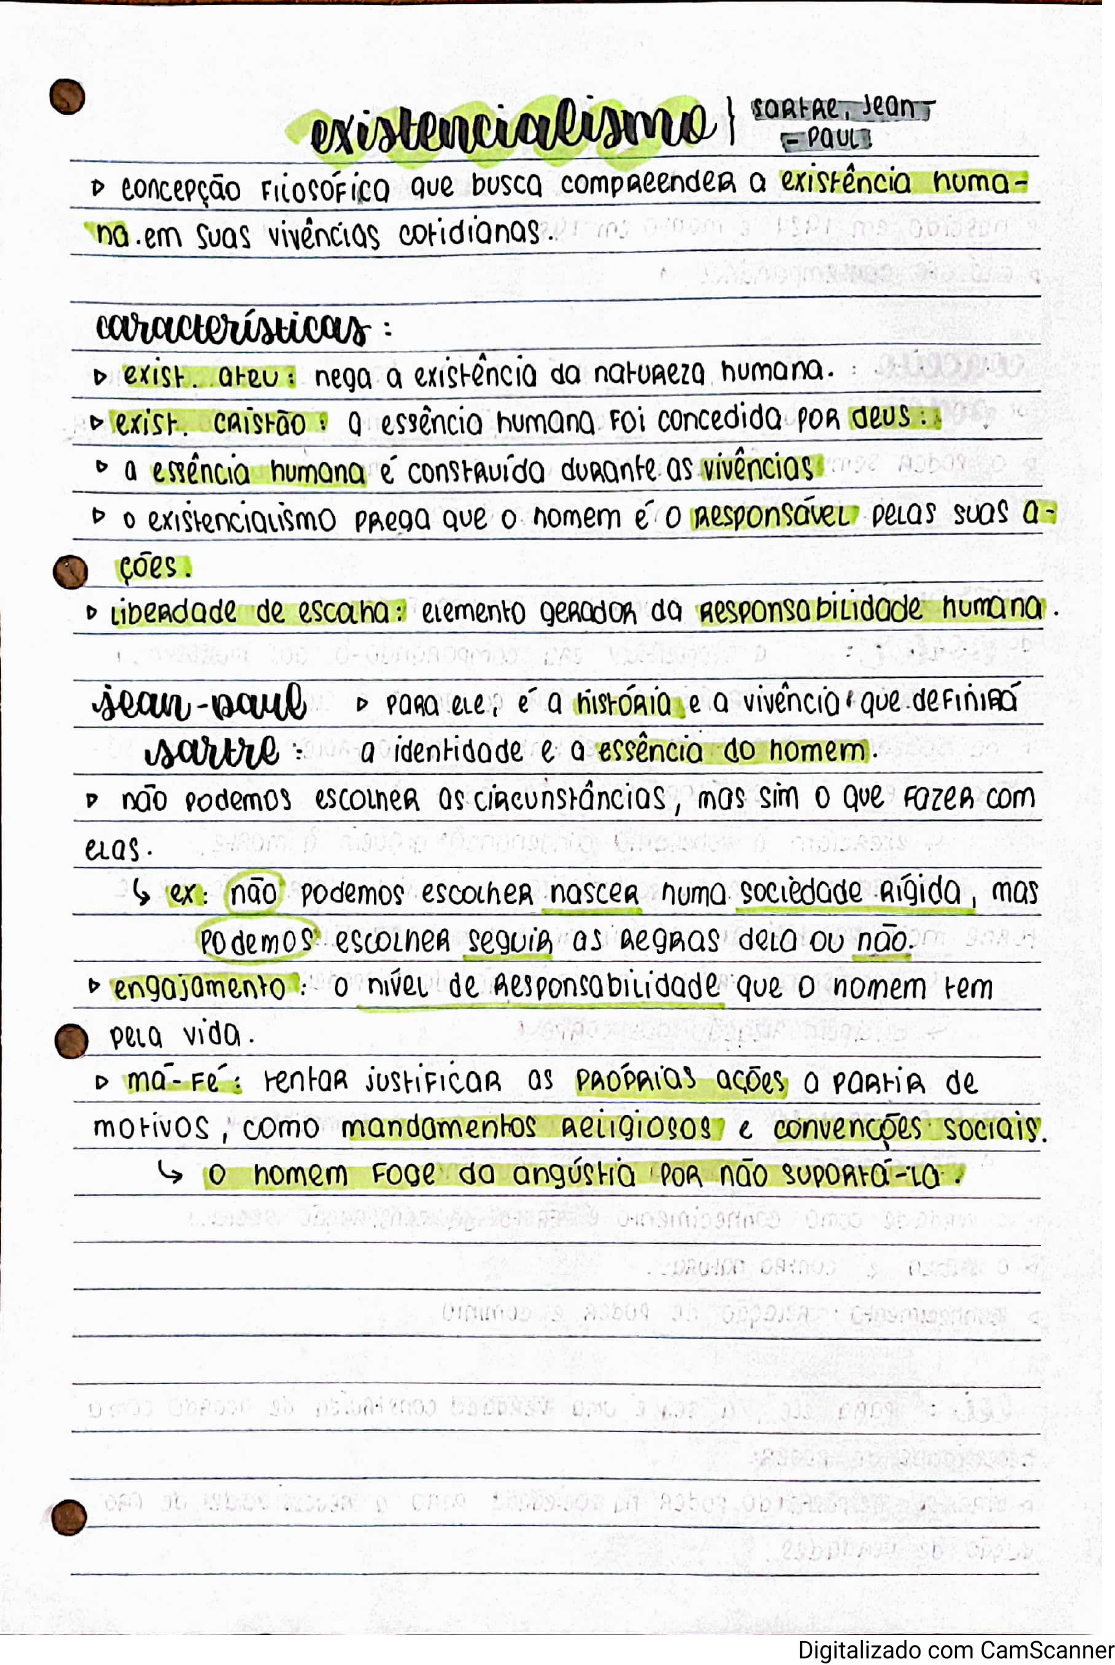 existencialismo | SARTRE, Jean
- PAUL
▹ concepção filosófica que busca compreender a existência huma-
na em suas vivências cotidianas.
características:
▹ exist. ateu: nega a existência da natureza humana.
▹ exist. cristão: a essência humana foi concedida por deus:
▹ a essência humana é construída durante as vivências
▹ o existencialismo prega que o homem é o responsável pelas suas a-
ções.
▹ liberdade de escolha: elemento gerador da responsabilidade humana.
jean-paul ▹ para ele, é a história e a vivência que definirá
sartre: a identidade e a essência do homem.
▹ não podemos escolher as circunstâncias, mas sim o que fazer com
elas.
↳ ex: não podemos escolher nascer numa sociedade rígida, mas
podemos escolher seguir as regras dela ou não.
▹ engajamento: o nível de responsabilidade que o homem tem
pela vida.
▹ má-fé: tentar justificar as próprias ações a partir de
motivos, como mandamentos religiosos e convenções sociais.
↳ o homem foge da angústia por não suportá-la.
Digitalizado com CamScanner